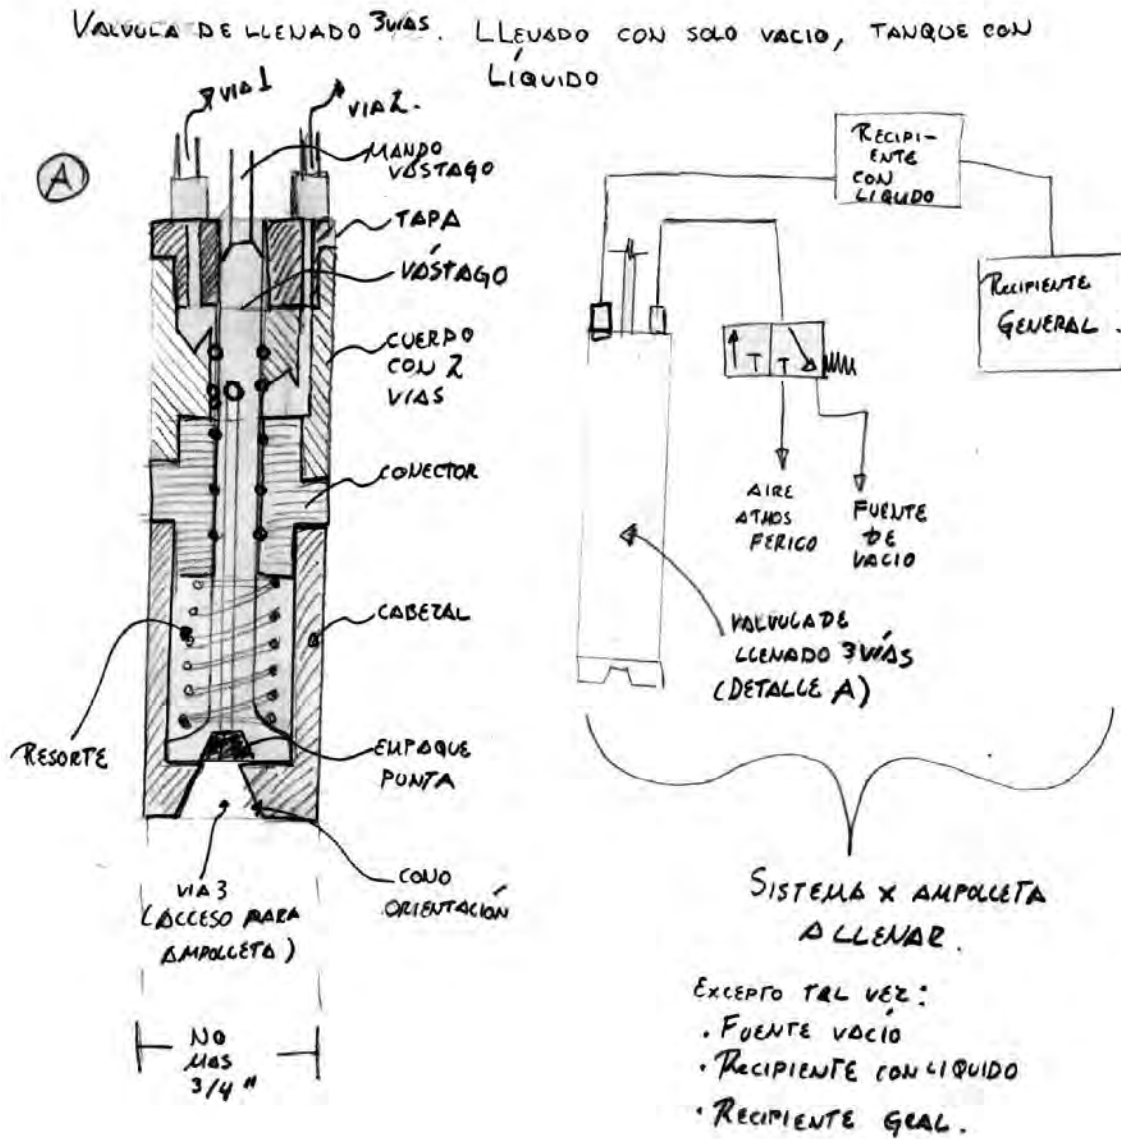 VALVULA DE LLENADO 3 VIAS. LLENADO CON SOLO VACIO, TANQUE CON
LÍQUIDO
VIA 1
VIA 2.
A
MANDO
VÁSTAGO
TAPA
VÁSTAGO
CUERPO
CON 2
VIAS
CONECTOR
CABEZAL
RESORTE
EMPAQUE
PUNTA
VIA 3
(ACCESO PARA
AMPOLLETA)
CONO
ORIENTACIÓN
NO
MAS
3/4"
RECIPI-
ENTE
CON
LIQUIDO
RECIPIENTE
GENERAL.
T T
AIRE
ATMOS
FERICO
FUENTE
DE
VACIO
VALVULA DE
LLENADO 3 VÍAS
(DETALLE A)
SISTEMA X AMPOLLETA
A LLENAR.
EXCEPTO TAL VEZ:
· FUENTE VACÍO
· RECIPIENTE CON LIQUIDO
· RECIPIENTE GRAL.